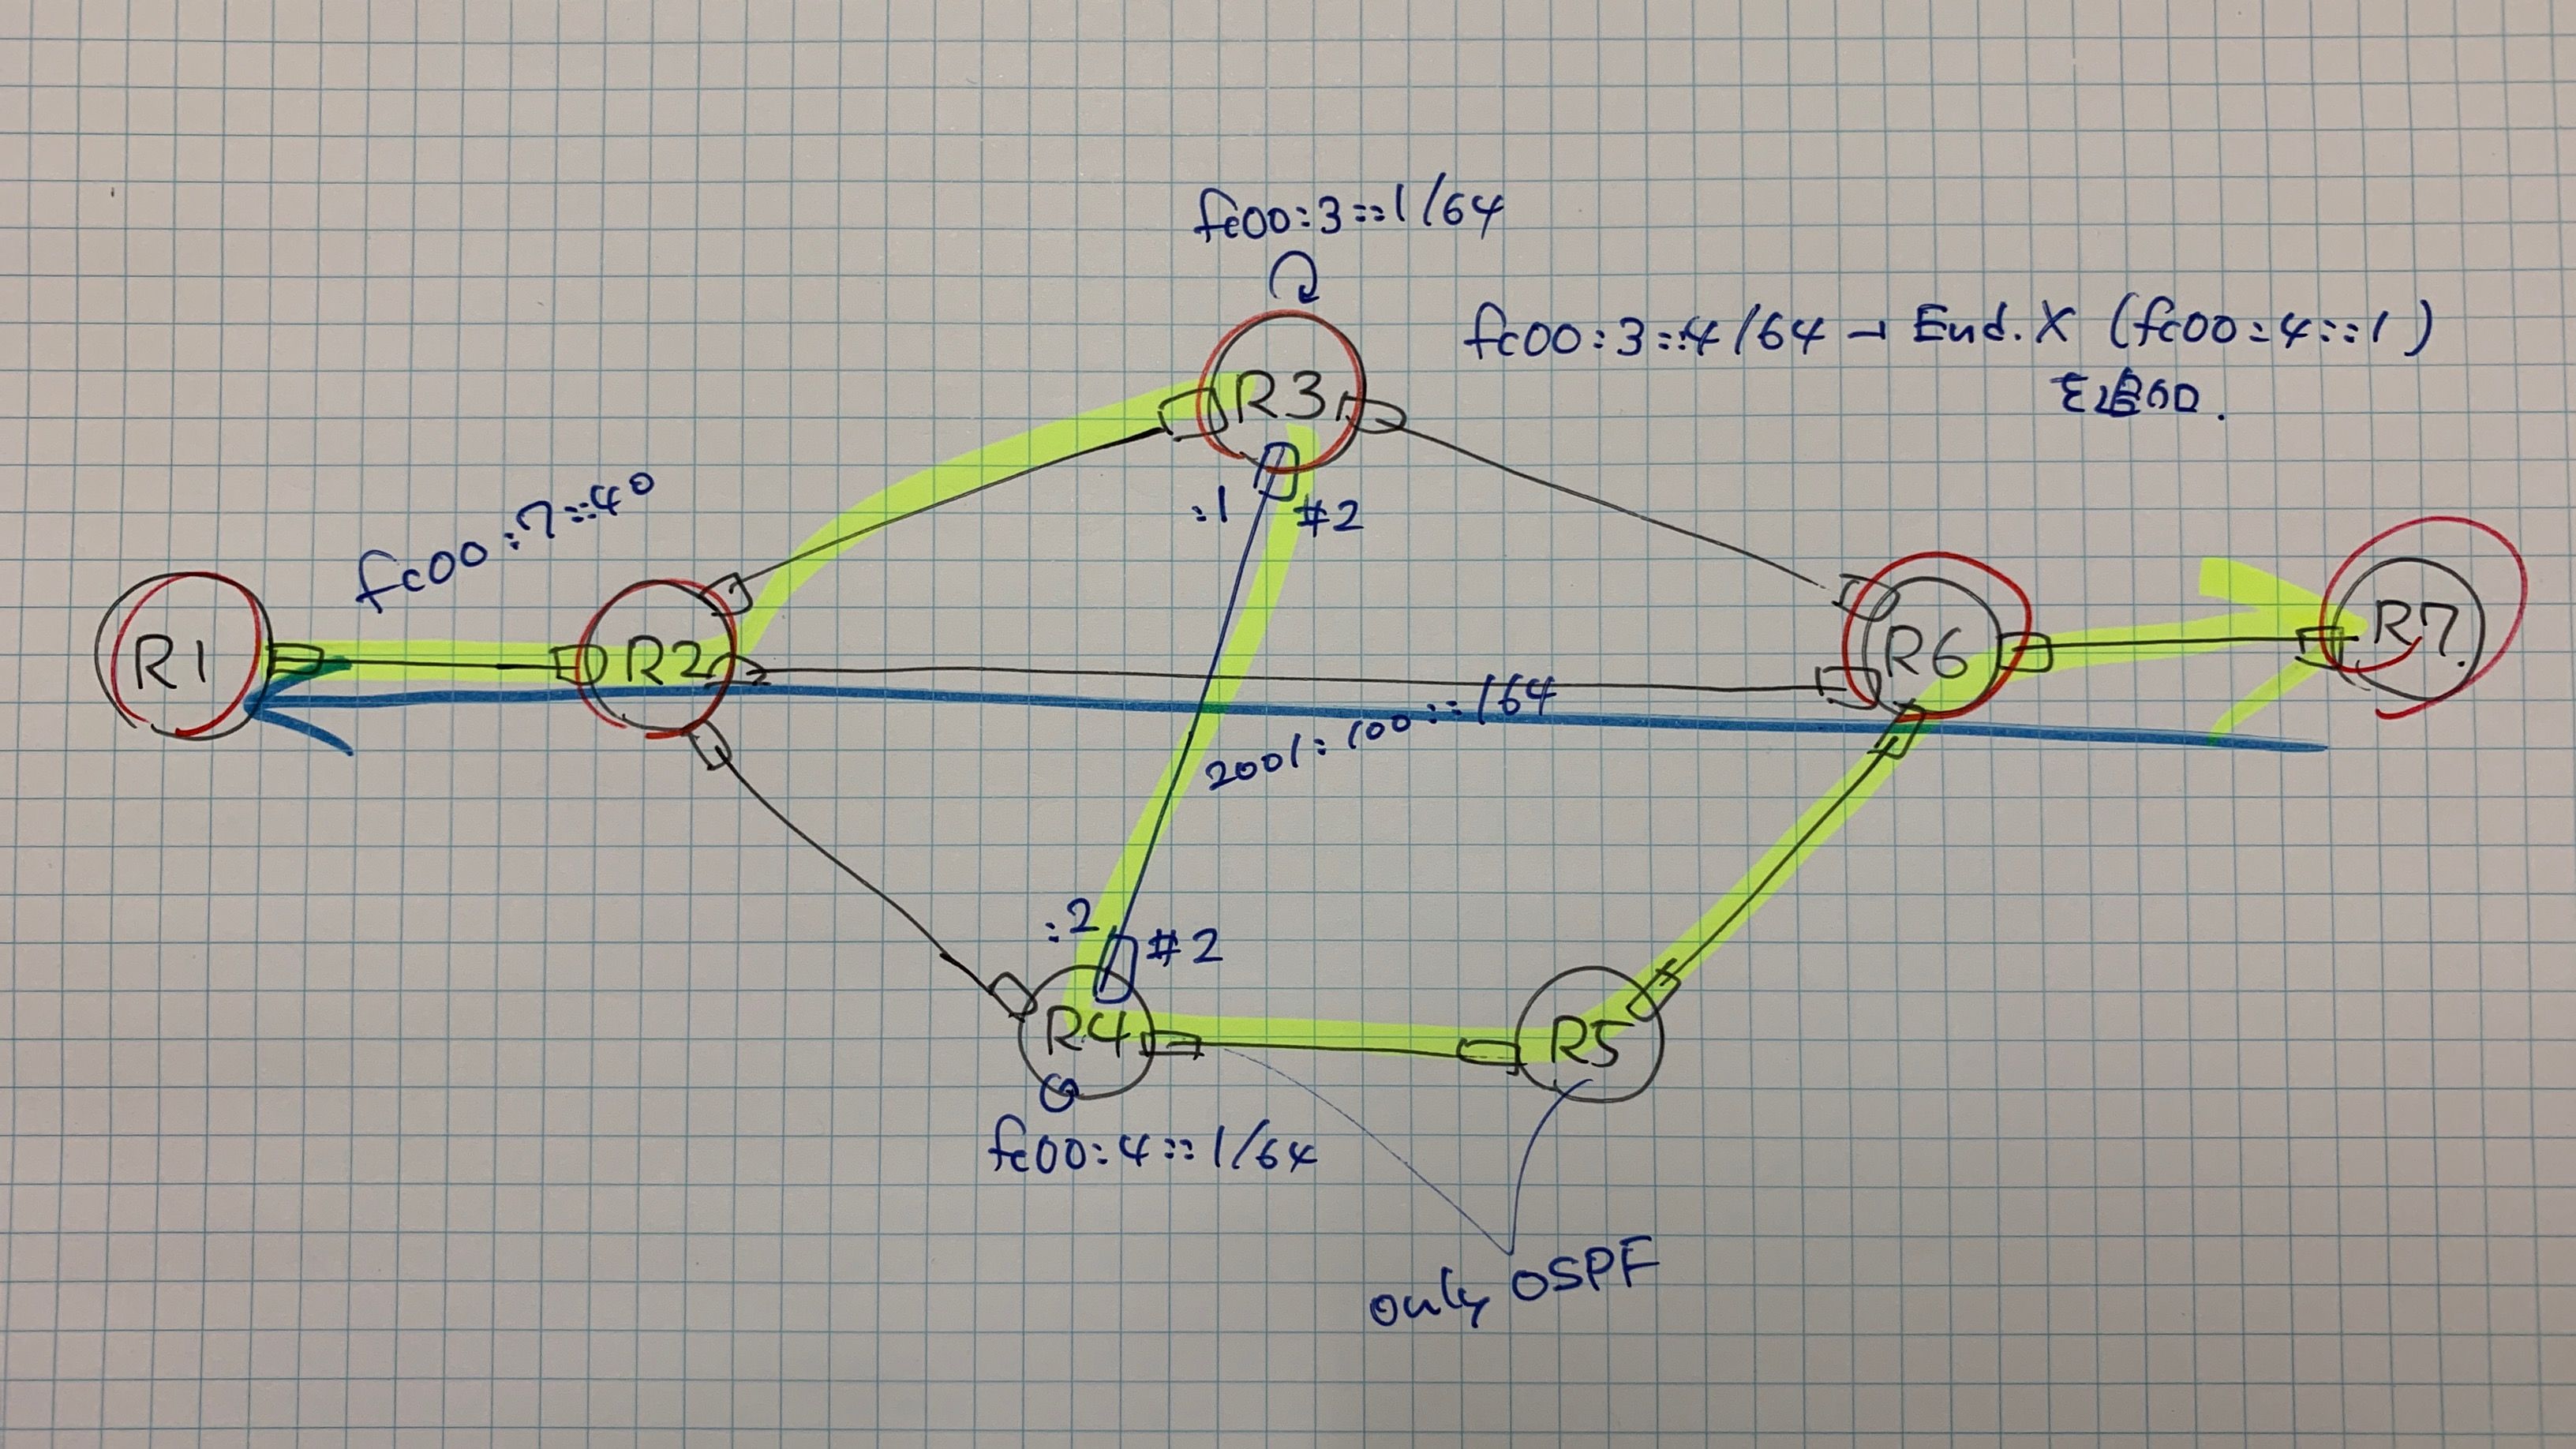 fc00:3::1/64
fc00:3::4/64 → End.X (fc00:4::1)
R3
:1
#2
fc00:7::40
R1
R2
R6
R7
2001:100::/64
:2
#2
R4
R5
fc00:4::1/64
only OSPF